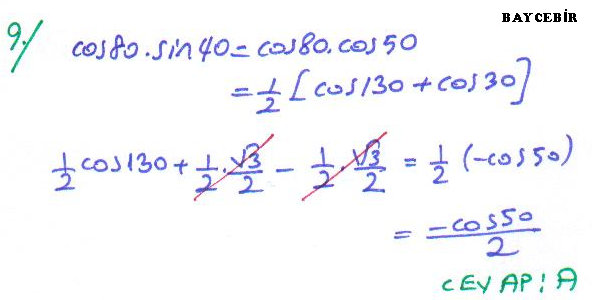 BAYCEBİR
9./ cos80.sin40=cos80.cos50
=1/2 [cos130+cos30]
1/2 cos130+1/2.√3/2 - 1/2.√3/2 = 1/2 (-cos50)
= -cos50/2
CEVAP: A